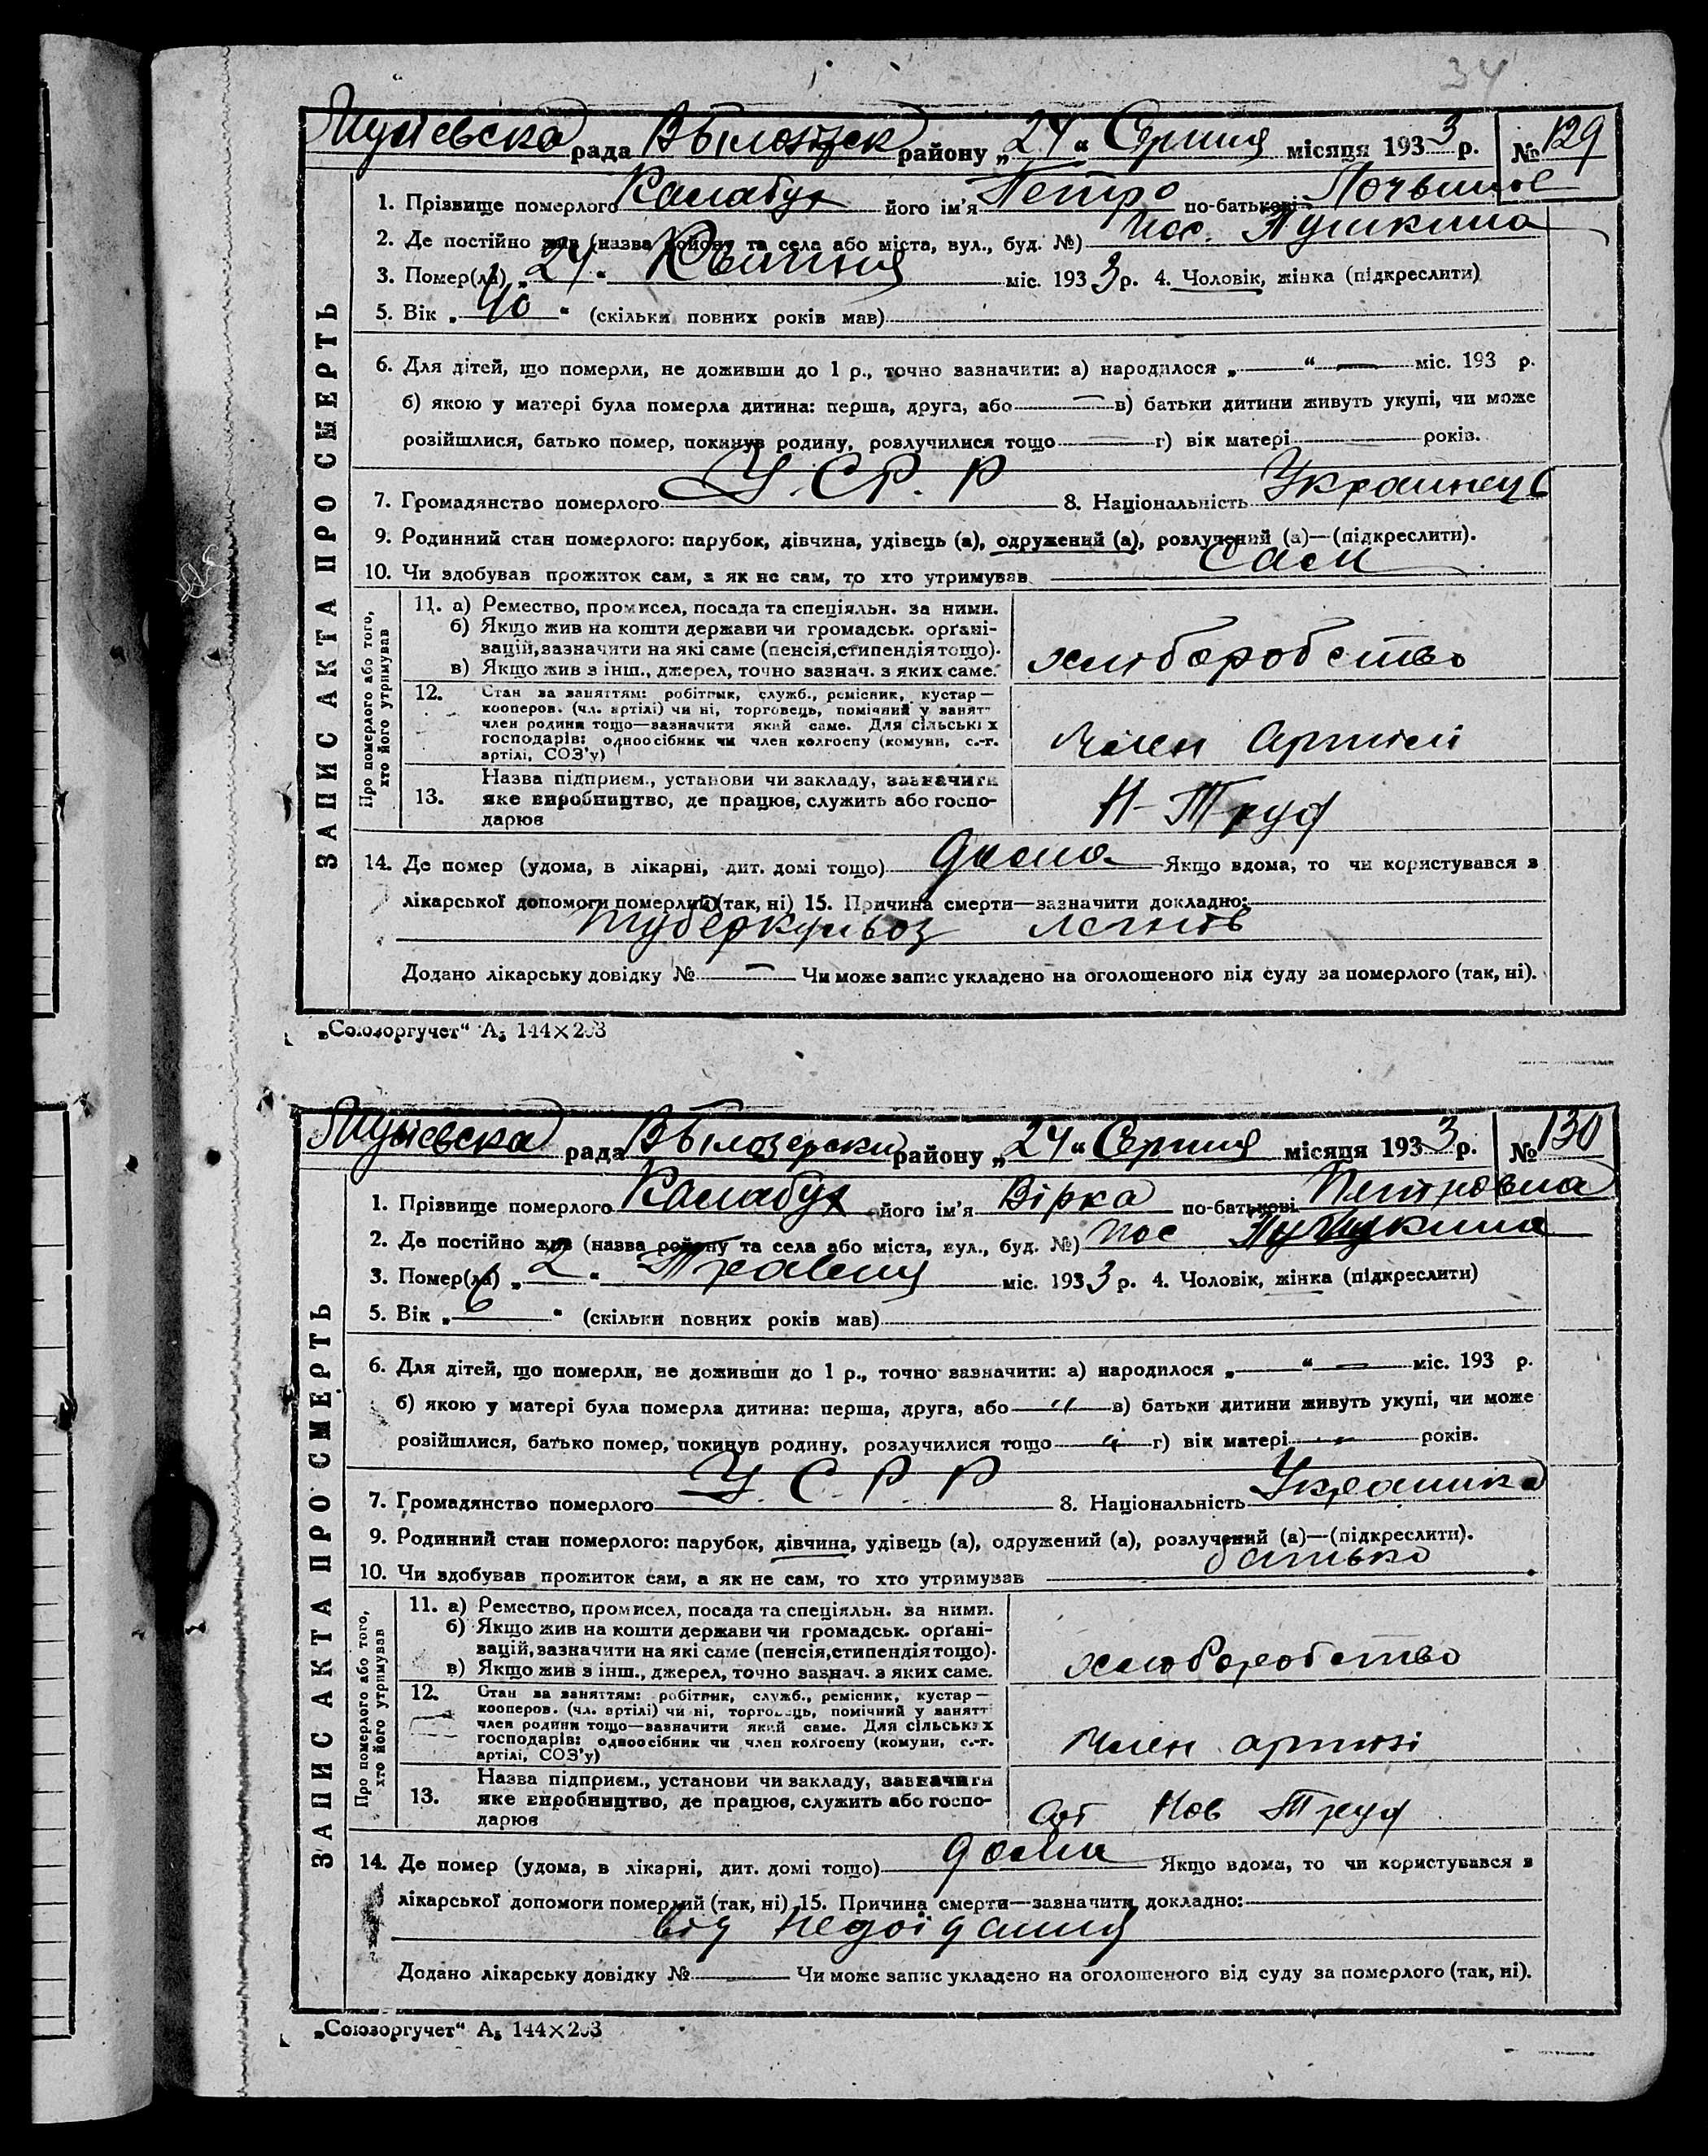 34
рада В Білозерск району „24“ Серпня місяця 1933 р. № 129
1. Прізвище померлого Калабух його ім'я Петро по-батькові
2. Де постійно жив (назва району та села або міста, вул., буд. №) пос. Пушкина
3. Помер(ла) „24“ Квітня міс. 1933 р. 4. Чоловік, жінка (підкреслити)
5. Вік „40“ (скільки повних років мав)
6. Для дітей, що померли, не доживши до 1 р., точно зазначити: а) народилося „—“ — міс. 193 р.
б) якою у матері була померла дитина: перша, друга, або — в) батьки дитини живуть укупі, чи може
розійшлися, батько помер, покинув родину, розлучилися тощо — г) вік матері років.
7. Громадянство померлого У.С.Р.Р 8. Національність Украинець
9. Родинний стан померлого: парубок, дівчина, удівець (а), одружений (а), розлучений (а)—(підкреслити).
10. Чи здобував прожиток сам, а як не сам, то хто утримував сам
ЗАПИС АКТА ПРО СМЕРТЬ
Про померлого або того, хто його утримував
11. а) Ремество, промисел, посада та спеціяльн. за ними.
б) Якщо жив на кошти держави чи громадськ. органі-
зацій, зазначити на які саме (пенсія, стипендія тощо).
в) Якщо жив з інш., джерел, точно зазнач. з яких саме.
хліборобство
12. Стан за заняттям: робітник, служб., ремісник, кустар —
кооперов. (чл. артілі) чи ні, торговець, помічний у занятт
член родини тощо—зазначити який саме. Для сільських
господарів: одноосібник чи член колгоспу (комуни, с.-г.
артілі, СОЗ'у)
член Артилі
13. Назва підприєм., установи чи закладу, зазначити
яке виробництво, де працює, служить або госпо-
дарює
Н-Труд
14. Де помер (удома, в лікарні, дит. домі тощо) дома Якщо вдома, то чи користувався з
лікарської допомоги померлий (так, ні) 15. Причина смерти—зазначити докладно:
туберкульоз легнів
Додано лікарську довідку № — Чи може запис укладено на оголошеного від суду за померлого (так, ні).
„Союзоргучет“ А5 144×203
рада В Білозерски району „24“ Серпня місяця 1933 р. № 130
1. Прізвище померлого Калабух його ім'я Вірка по-батькові Петровна
2. Де постійно жив (назва району та села або міста, вул., буд. №) пос Пушкина
3. Помер(ла) „2“ Травня міс. 1933 р. 4. Чоловік, жінка (підкреслити)
5. Вік „6“ (скільки повних років мав)
6. Для дітей, що померли, не доживши до 1 р., точно зазначити: а) народилося „—“ — міс. 193 р.
б) якою у матері була померла дитина: перша, друга, або „ в) батьки дитини живуть укупі, чи може
розійшлися, батько помер, покинув родину, розлучилися тощо „ г) вік матері „ років.
7. Громадянство померлого У.С.Р.Р 8. Національність Украинка
9. Родинний стан померлого: парубок, дівчина, удівець (а), одружений (а), розлучений (а)—(підкреслити).
10. Чи здобував прожиток сам, а як не сам, то хто утримував батько
ЗАПИС АКТА ПРО СМЕРТЬ
Про померлого або того, хто його утримував
11. а) Ремество, промисел, посада та спеціяльн. за ними.
б) Якщо жив на кошти держави чи громадськ. органі-
зацій, зазначити на які саме (пенсія, стипендія тощо).
в) Якщо жив з інш., джерел, точно зазнач. з яких саме.
хліборобство
12. Стан за заняттям: робітник, служб., ремісник, кустар —
кооперов. (чл. артілі) чи ні, торговець, помічний у занятт
член родини тощо—зазначити який саме. Для сільських
господарів: одноосібник чи член колгоспу (комуни, с.-г.
артілі, СОЗ'у)
член артілі
13. Назва підприєм., установи чи закладу, зазначити
яке виробництво, де працює, служить або госпо-
дарює
Нов Труд
14. Де помер (удома, в лікарні, дит. домі тощо) дома Якщо вдома, то чи користувався з
лікарської допомоги померлий (так, ні) 15. Причина смерти—зазначити докладно:
від недоїдання
Додано лікарську довідку № Чи може запис укладено на оголошеного від суду за померлого (так, ні).
„Союзоргучет“ А5 144×203